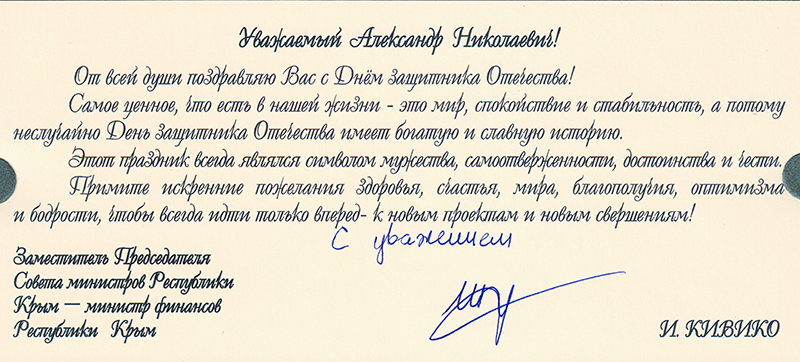 Уважаемый Александр Николаевич!
От всей души поздравляю Вас с Днём защитника Отечества!
Самое ценное, что есть в нашей жизни - это мир, спокойствие и стабильность, а потому
неслучайно День защитника Отечества имеет богатую и славную историю.
Этот праздник всегда являлся символом мужества, самоотверженности, достоинства и чести.
Примите искренние пожелания здоровья, счастья, мира, благополучия, оптимизма
и бодрости, чтобы всегда идти только вперед- к новым проектам и новым свершениям!
С уважением
Заместитель Председателя
Совета министров Республики
Крым — министр финансов
Республики Крым
И. КИВИКО